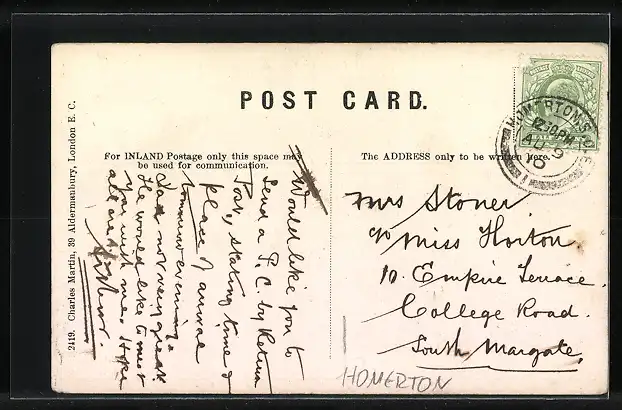 POST CARD.
For INLAND Postage only this space may
be used for communication.
The ADDRESS only to be written here.
2419. Charles Martin, 39 Aldermanbury, London E. C.
HOMERTON S.O.
12.30 PM
AU 9
10
Would like you to
send a P.C by Return
Post, stating time &
place of arrival
tomorrow evening
Dad not very great
He would like to meet
you with me. Hope
all are
Arthur.
Mrs Stoner
c/o Miss Horton.
10. Empire Terrace.
College Road.
South Margate.
HOMERTON